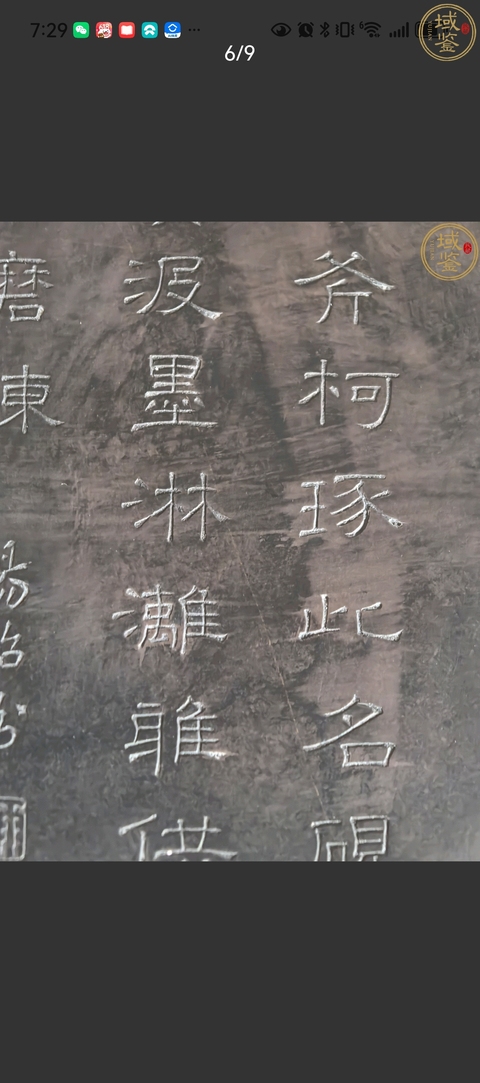 7:29
6/9
域鉴
域鉴
斧柯琢此名硯
汲墨淋灕供
磨東